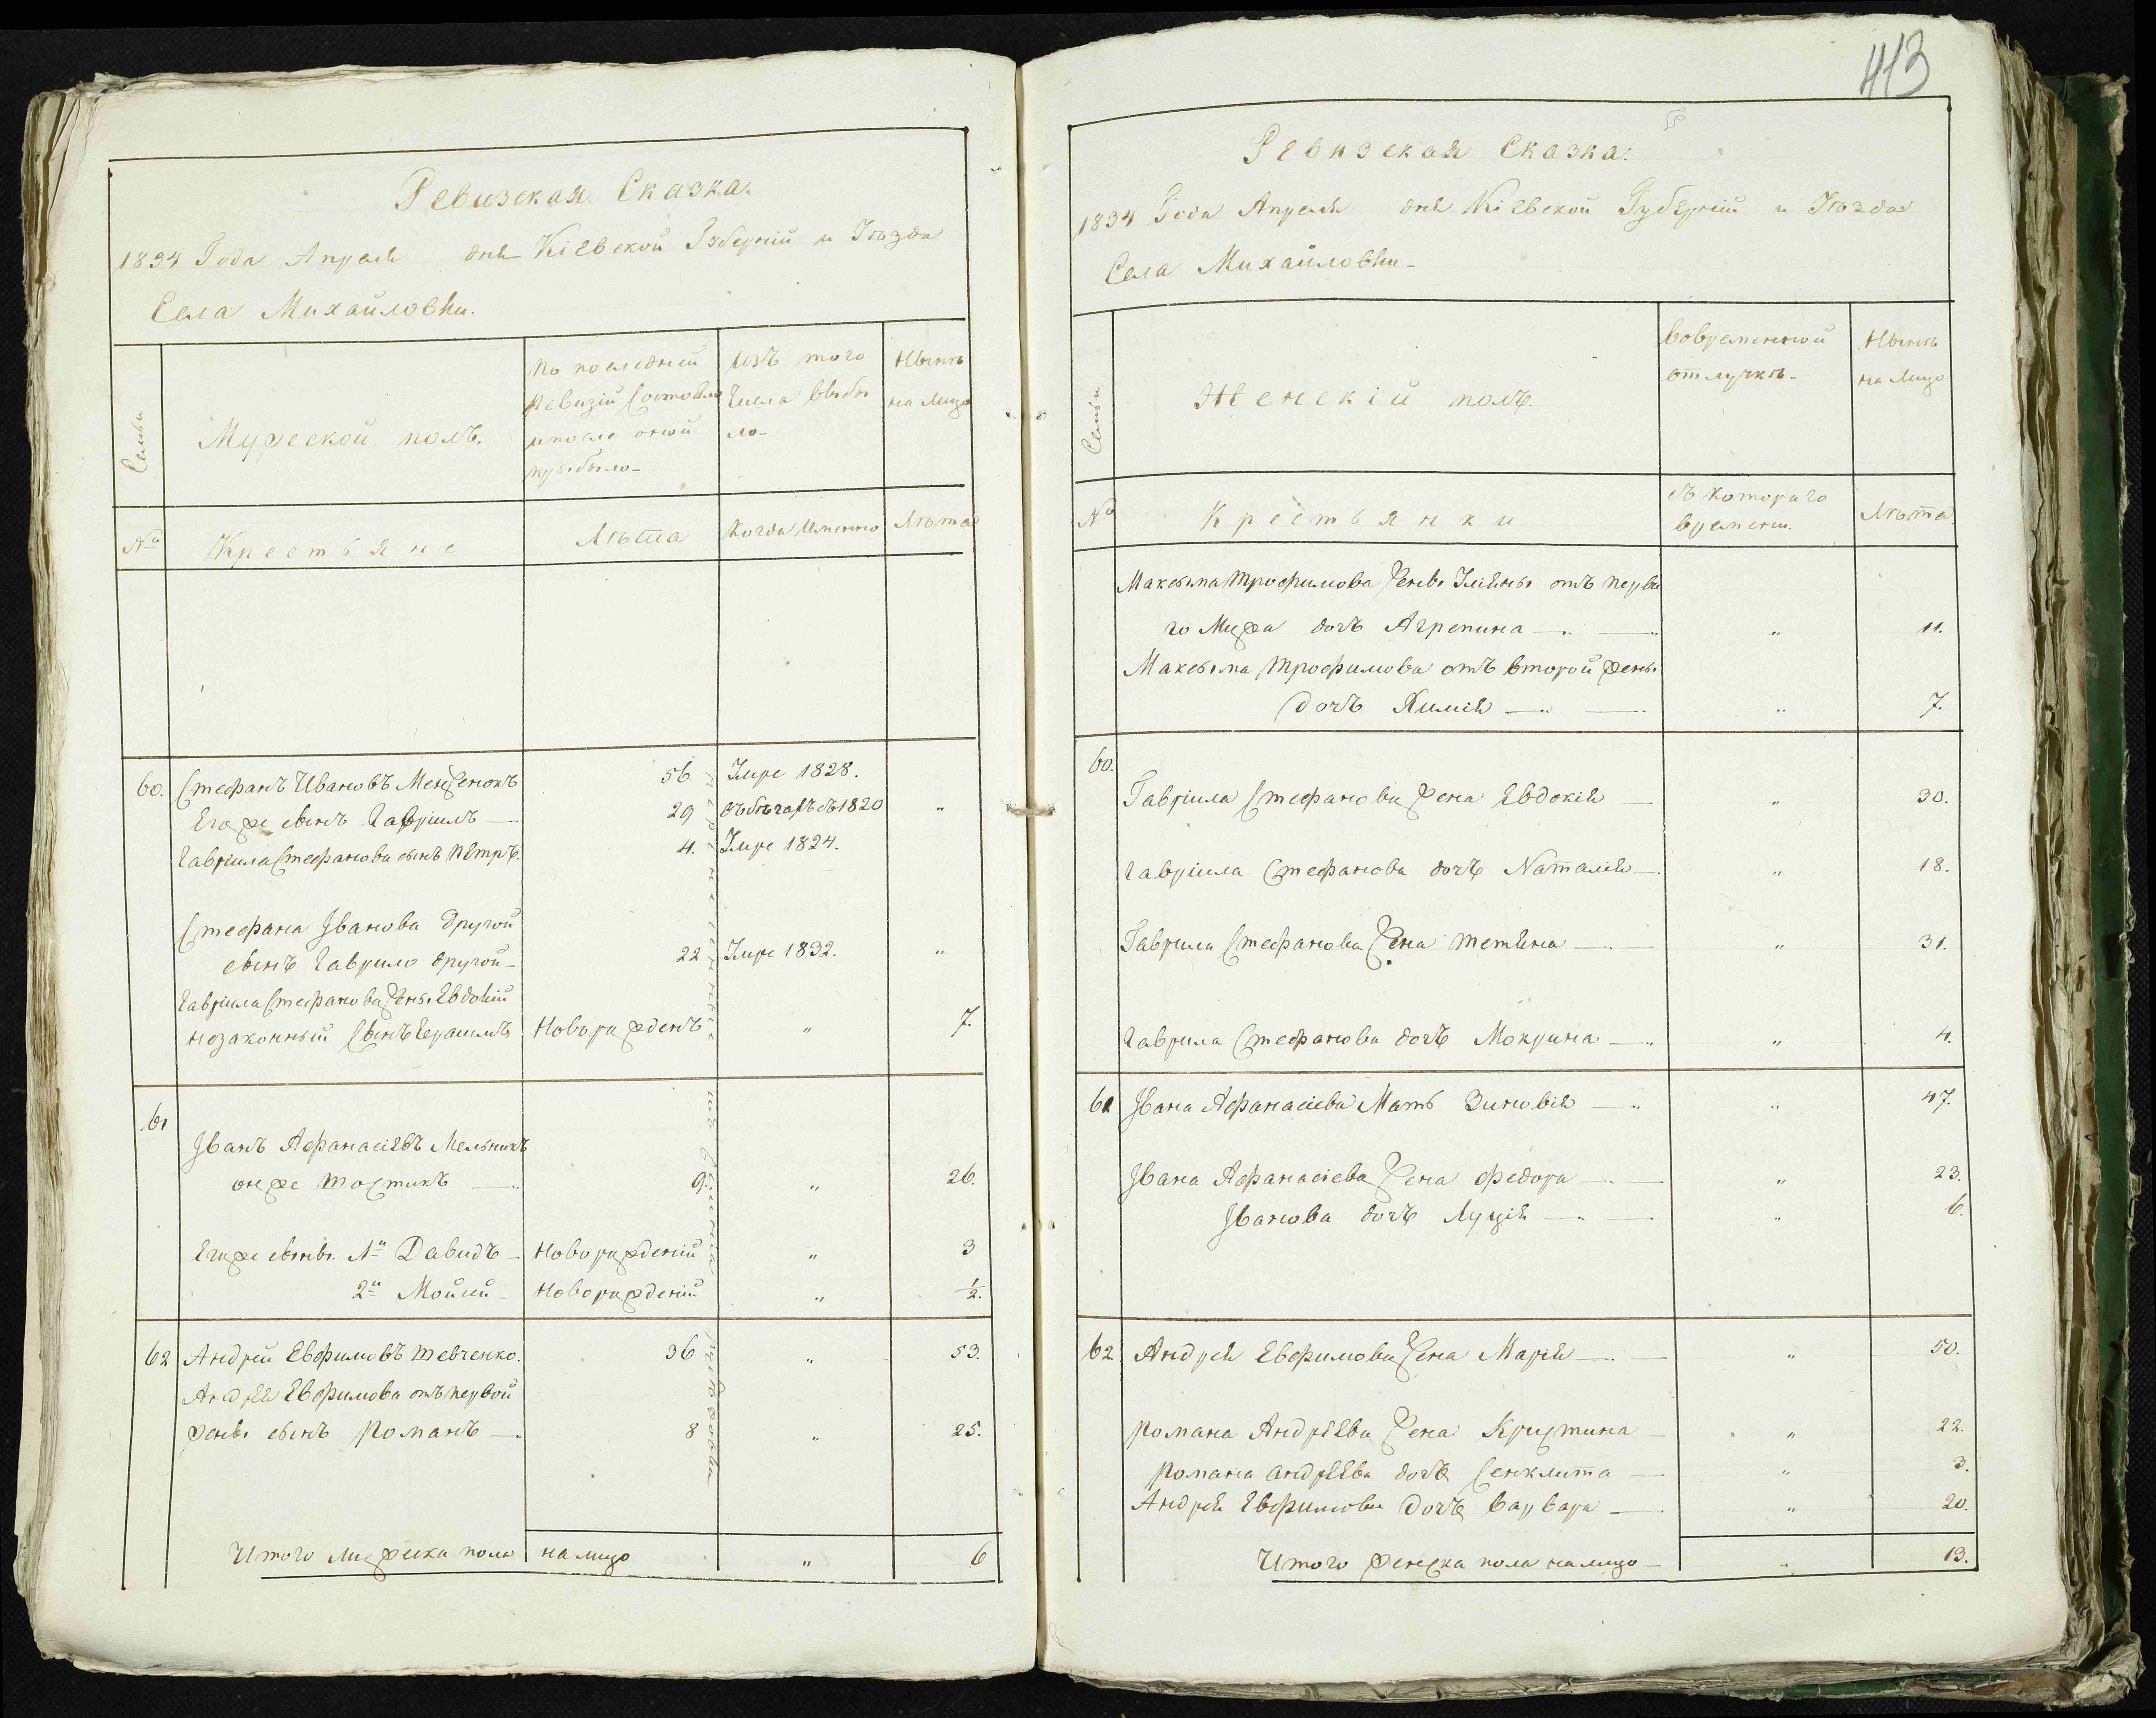 413
Ревизская Сказка.
1834 Года Апреля дня Кіевской Губерніи и Уѣзда
Села Михайловки.
Семьи
Мужеской полъ.
По последней
ревизіи состояло
и после оной
прибыло
Изъ того
Числа выбы
ло
Нынѣ
на лицо
№
Крестьяне
Лѣта
Когда Именно
Лѣта
60. Стефанъ Ивановъ 56 Умре 1828.
Егоже сынъ Гавріилъ 29 въ бѣгахъ съ 1820 "
Гавріила Стефанова сынъ Петръ. 4. Умре 1824.
Стефана Іванова другой
сынъ Гаврило другой 22 Умре 1832. "
Гавріила Стефанова жены Евдокіи
незаконный сынъ Герасимъ Новорожденъ " 7.
61
Іванъ Афанасіевъ Мельникъ
онже 9. " 26.
Егоже сыны. 1й Давидъ Новорожденій " 3
2й Мойсей Новорожденій " ½.
62 Андрей Евфимовъ Шевченко. 36 " 53.
Андрея Евфимова отъ первой
жены сынъ Романъ 8 " 25.
перенесенные
Итого мужеска пола на лицо " 6
Ревизская Сказка.
1834 Года Апреля дня Кіевской Губерніи и Уѣзда
Села Михайловки
Семьи
Женскій полъ.
Вовременной
отлучкѣ
Нынѣ
на Лицо
№
Крестьянки
съ котораго
времени.
Лѣта.
Максыма Трофимова жены Уліяны отъ перва
го Мужа дочъ Агрепина " 11.
Максыма Трофимова отъ второй жены
дочъ Химія " 7.
60.
Гавріила Стефанова жена Евдокія " 30.
Гавріила Стефанова дочъ Наталія " 18.
Гаврила Стефанова жена Тетяна " 31.
Гаврила Стефанова дочъ Мокрина " 4.
61 Івана Афанасіева Мать Зиновія " 47.
Івана Афанасіева жена Федора " 23.
Іванова дочъ Луція " 6.
62. Андрея Евфимова жена Марія " 50.
Романа Андреева жена Кристина " 22.
Романа Андреева дочъ Сенклита " 3.
Андрея Евфимова дочъ Варвара " 20.
Итого женска пола налицо " 13.